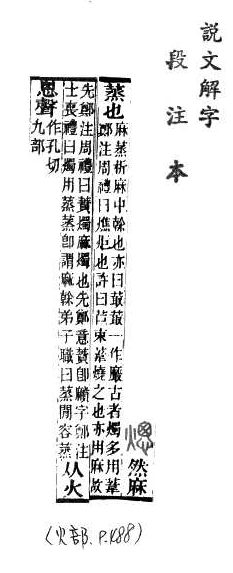 説文解字
段注本
熜 然麻
蒸也
麻蒸析麻中榦也亦曰菆菆一作黀古者燭多用葦
鄭注周禮曰燋炬也許曰苣束葦燒之也亦用麻故
先鄭注周禮曰蕡燭麻燭也先鄭意蕡卽黂字鄭注
士喪禮曰燭用蒸蒸卽謂麻榦弟子職曰蒸閒容蒸
从火
悤聲
作孔切
九部
(火部.P.488)